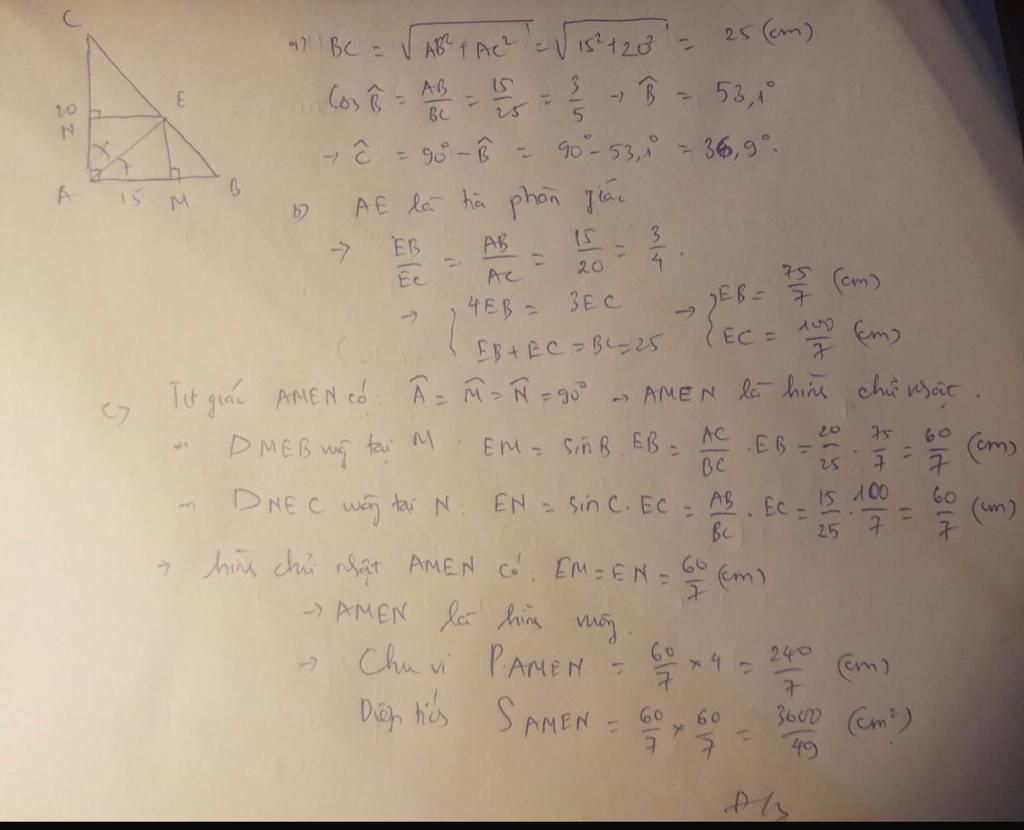 C
20
N
E
x
7
A
15
M
B
a) BC = √(AB² + AC²) = √(15² + 20²) = 25 (cm)
Cos B̂ = AB/BC = 15/25 = 3/5 → B̂ = 53,1°
→ Ĉ = 90° - B̂ = 90° - 53,1° = 36,9°.
b) AE là tia phân giác
→ EB/EC = AB/AC = 15/20 = 3/4.
→ { 4EB = 3EC → { EB = 75/7 (cm)
EB + EC = BC = 25 EC = 100/7 (cm)
c) Tứ giác AMEN có: Â = M̂ = N̂ = 90° → AMEN là hình chữ nhật.
- DMEB vuông tại M: EM = sin B. EB = AC/BC . EB = 20/25 . 75/7 = 60/7 (cm)
- DNEC vuông tại N: EN = sin C. EC = AB/BC . EC = 15/25 . 100/7 = 60/7 (cm)
→ hình chữ nhật AMEN có: EM = EN = 60/7 (cm)
→ AMEN là hình vuông.
→ Chu vi P.AMEN = 60/7 × 4 = 240/7 (cm)
Diện tích S AMEN = 60/7 × 60/7 = 3600/49 (cm²)